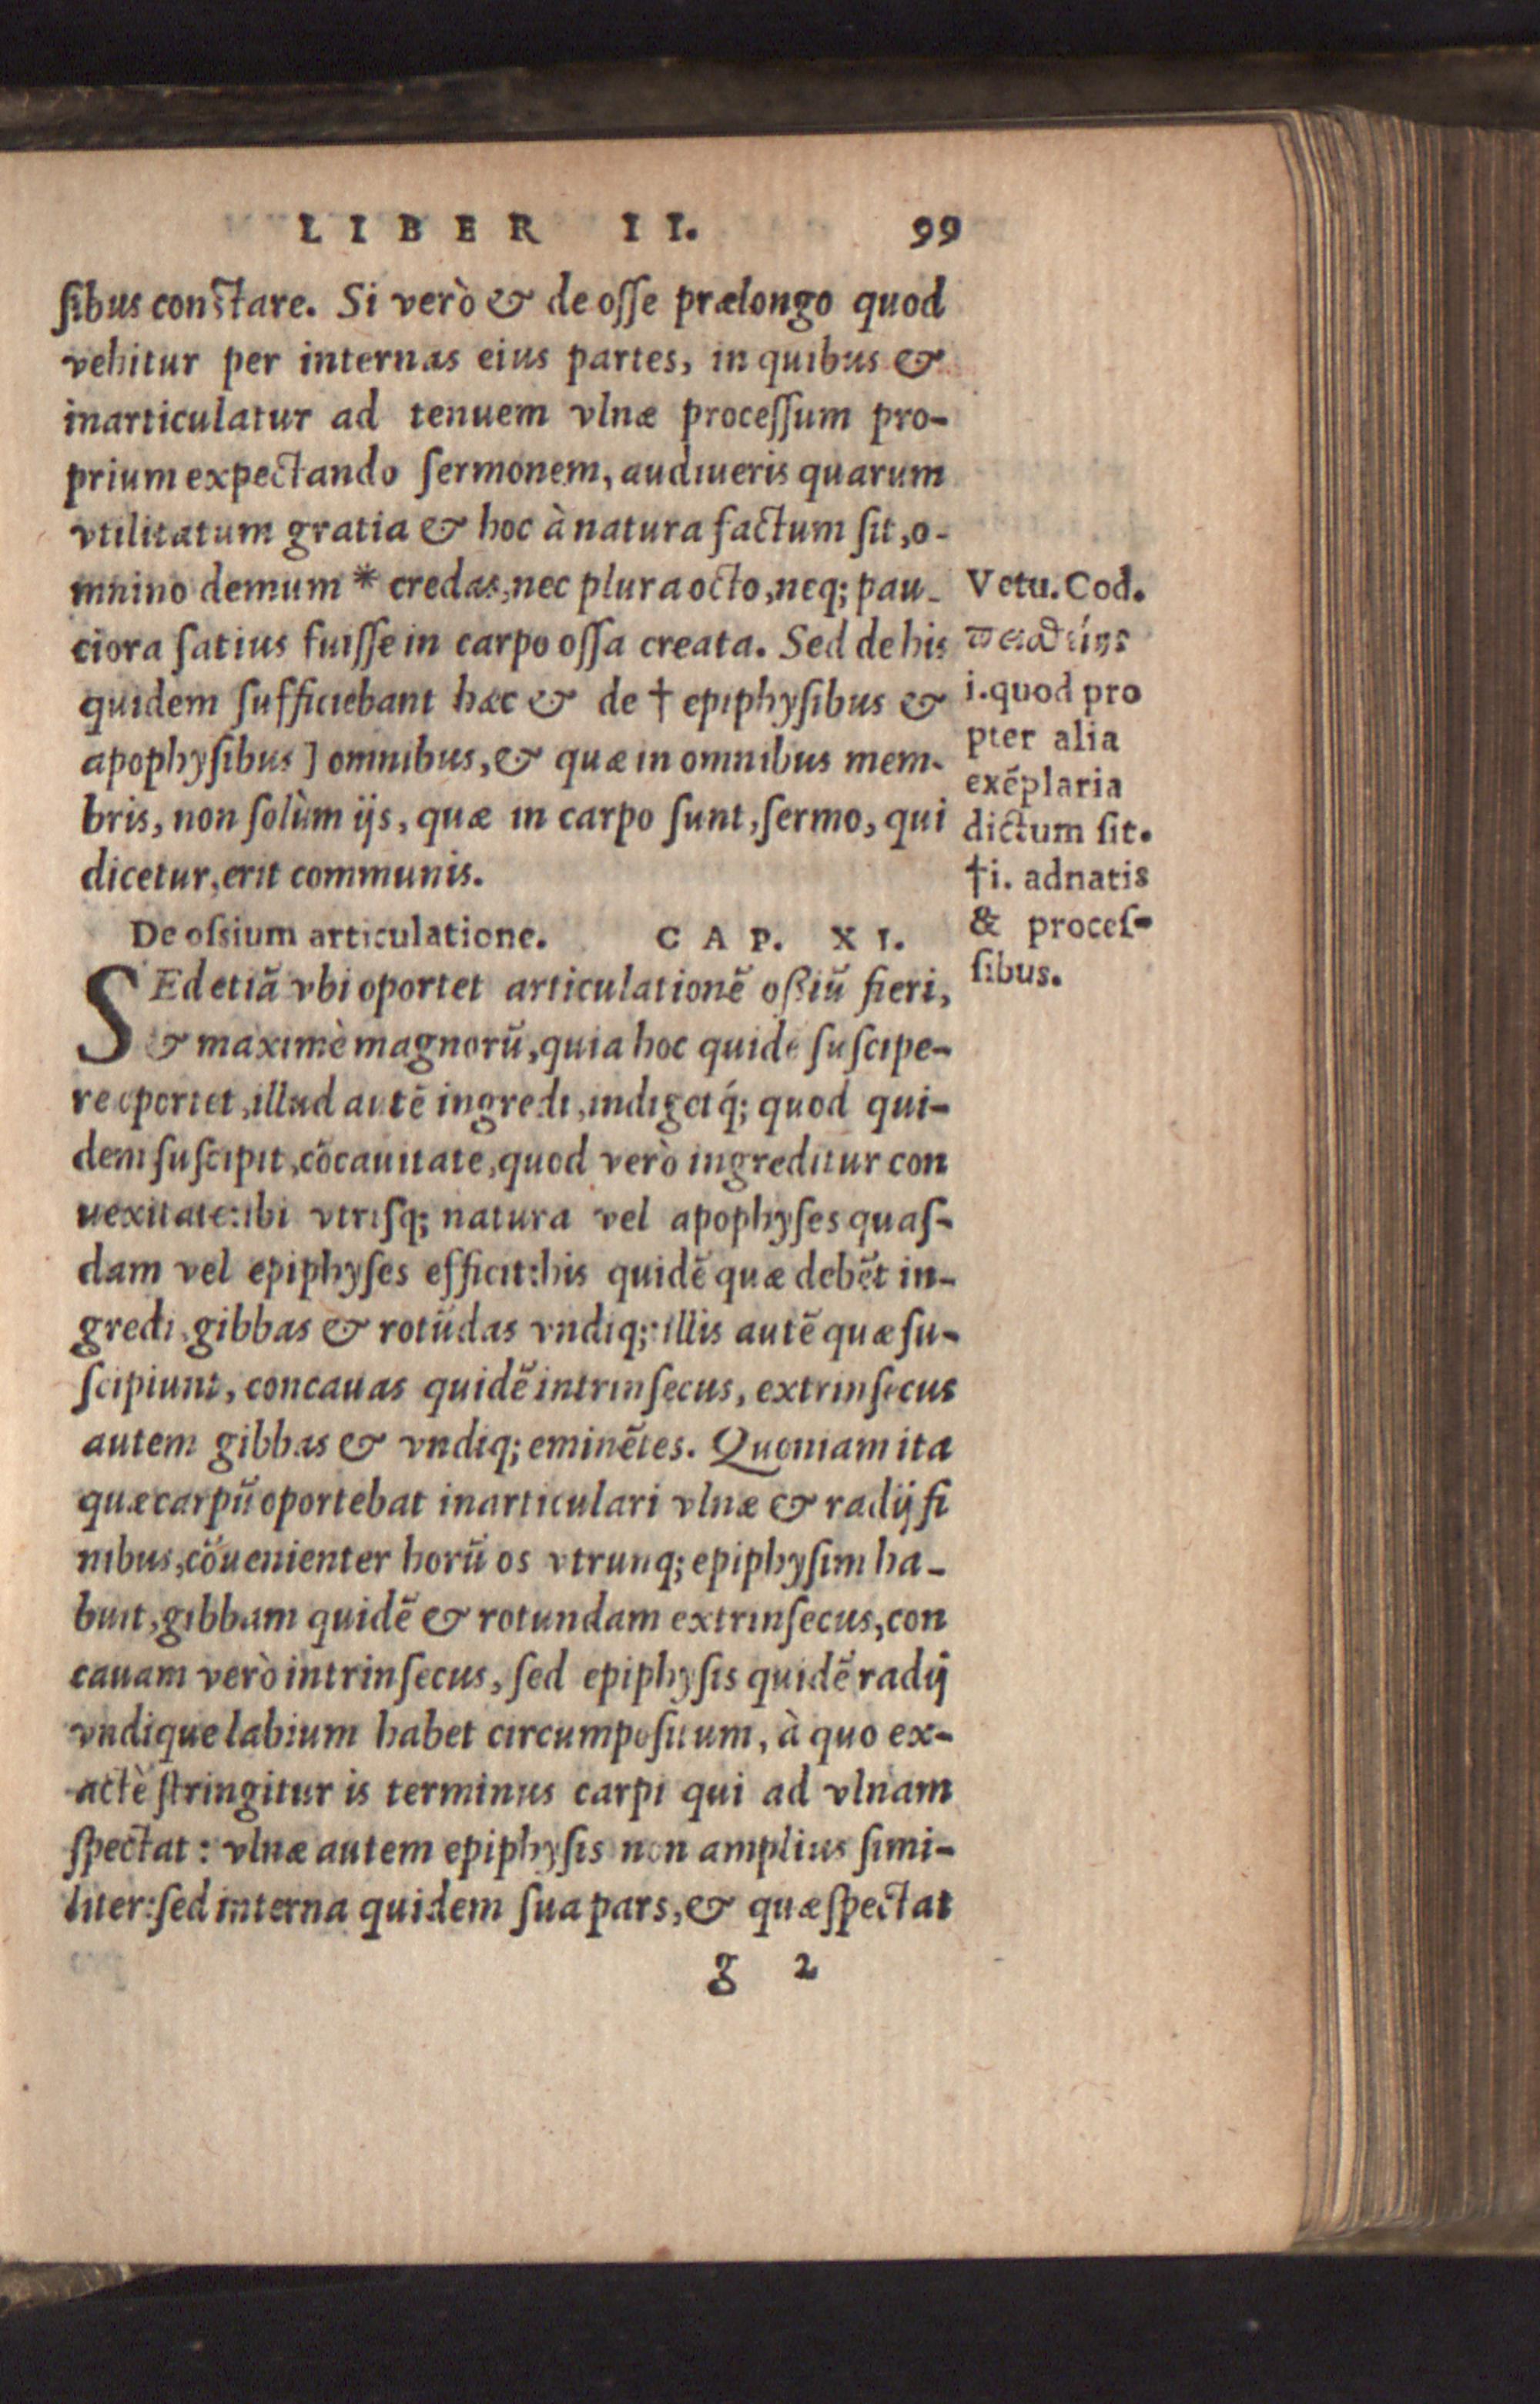 LIBER II. 99
ſibus conſtare. Si verò & de oſſe prælongo quod
vehitur per internas eius partes, in quibus &
inarticulatur ad tenuem vlnæ proceſſum pro-
prium expectando ſermonem, audiueris quarum
vtilitatum gratia & hoc à natura factum ſit, o-
mnino demum * credas, nec plura octo, neq; pau-
ciora ſatius fuiſſe in carpo oſſa creata. Sed de his
quidem ſufficiebant hæc & de † epiphyſibus &
apophyſibus] omnibus, & quæ in omnibus mem-
bris, non ſolùm ijs, quæ in carpo ſunt, ſermo, qui
dicetur, erit communis.
Vetu. Cod.
i. quod pro
pter alia
exẽplaria
dictum ſit.
†i. adnatis
& proceſ-
ſibus.
De oſsium articulatione. CAP. XI.
SEd etiã vbi oportet articulationẽ oßiũ fieri,
& maximè magnorũ, quia hoc quidẽ ſuſcipe-
re oportet, illud autẽ ingredi, indigetq́; quod qui-
dem ſuſcipit, cõcauitate, quod verò ingreditur con
uexitate: ibi vtriſq; natura vel apophyſes quaſ-
dam vel epiphyſes efficit: his quidẽ quæ debẽt in-
gredi, gibbas & rotũdas vndiq;: illis autẽ quæ ſu-
ſcipiunt, concauas quidẽ intrinſecus, extrinſecus
autem gibbas & vndiq; eminẽtes. Quoniam ita
quæ carpũ oportebat inarticulari vlnæ & radij fi
nibus, cõuenienter horũ os vtrunq; epiphyſim ha-
buit, gibbam quidẽ & rotundam extrinſecus, con
cauam verò intrinſecus, ſed epiphyſis quidẽ radij
vndique labium habet circumpoſitum, à quo ex-
actè ſtringitur is terminus carpi qui ad vlnam
ſpectat: vlnæ autem epiphyſis non amplius ſimi-
liter: ſed interna quidem ſua pars, & quæ ſpectat
g 2